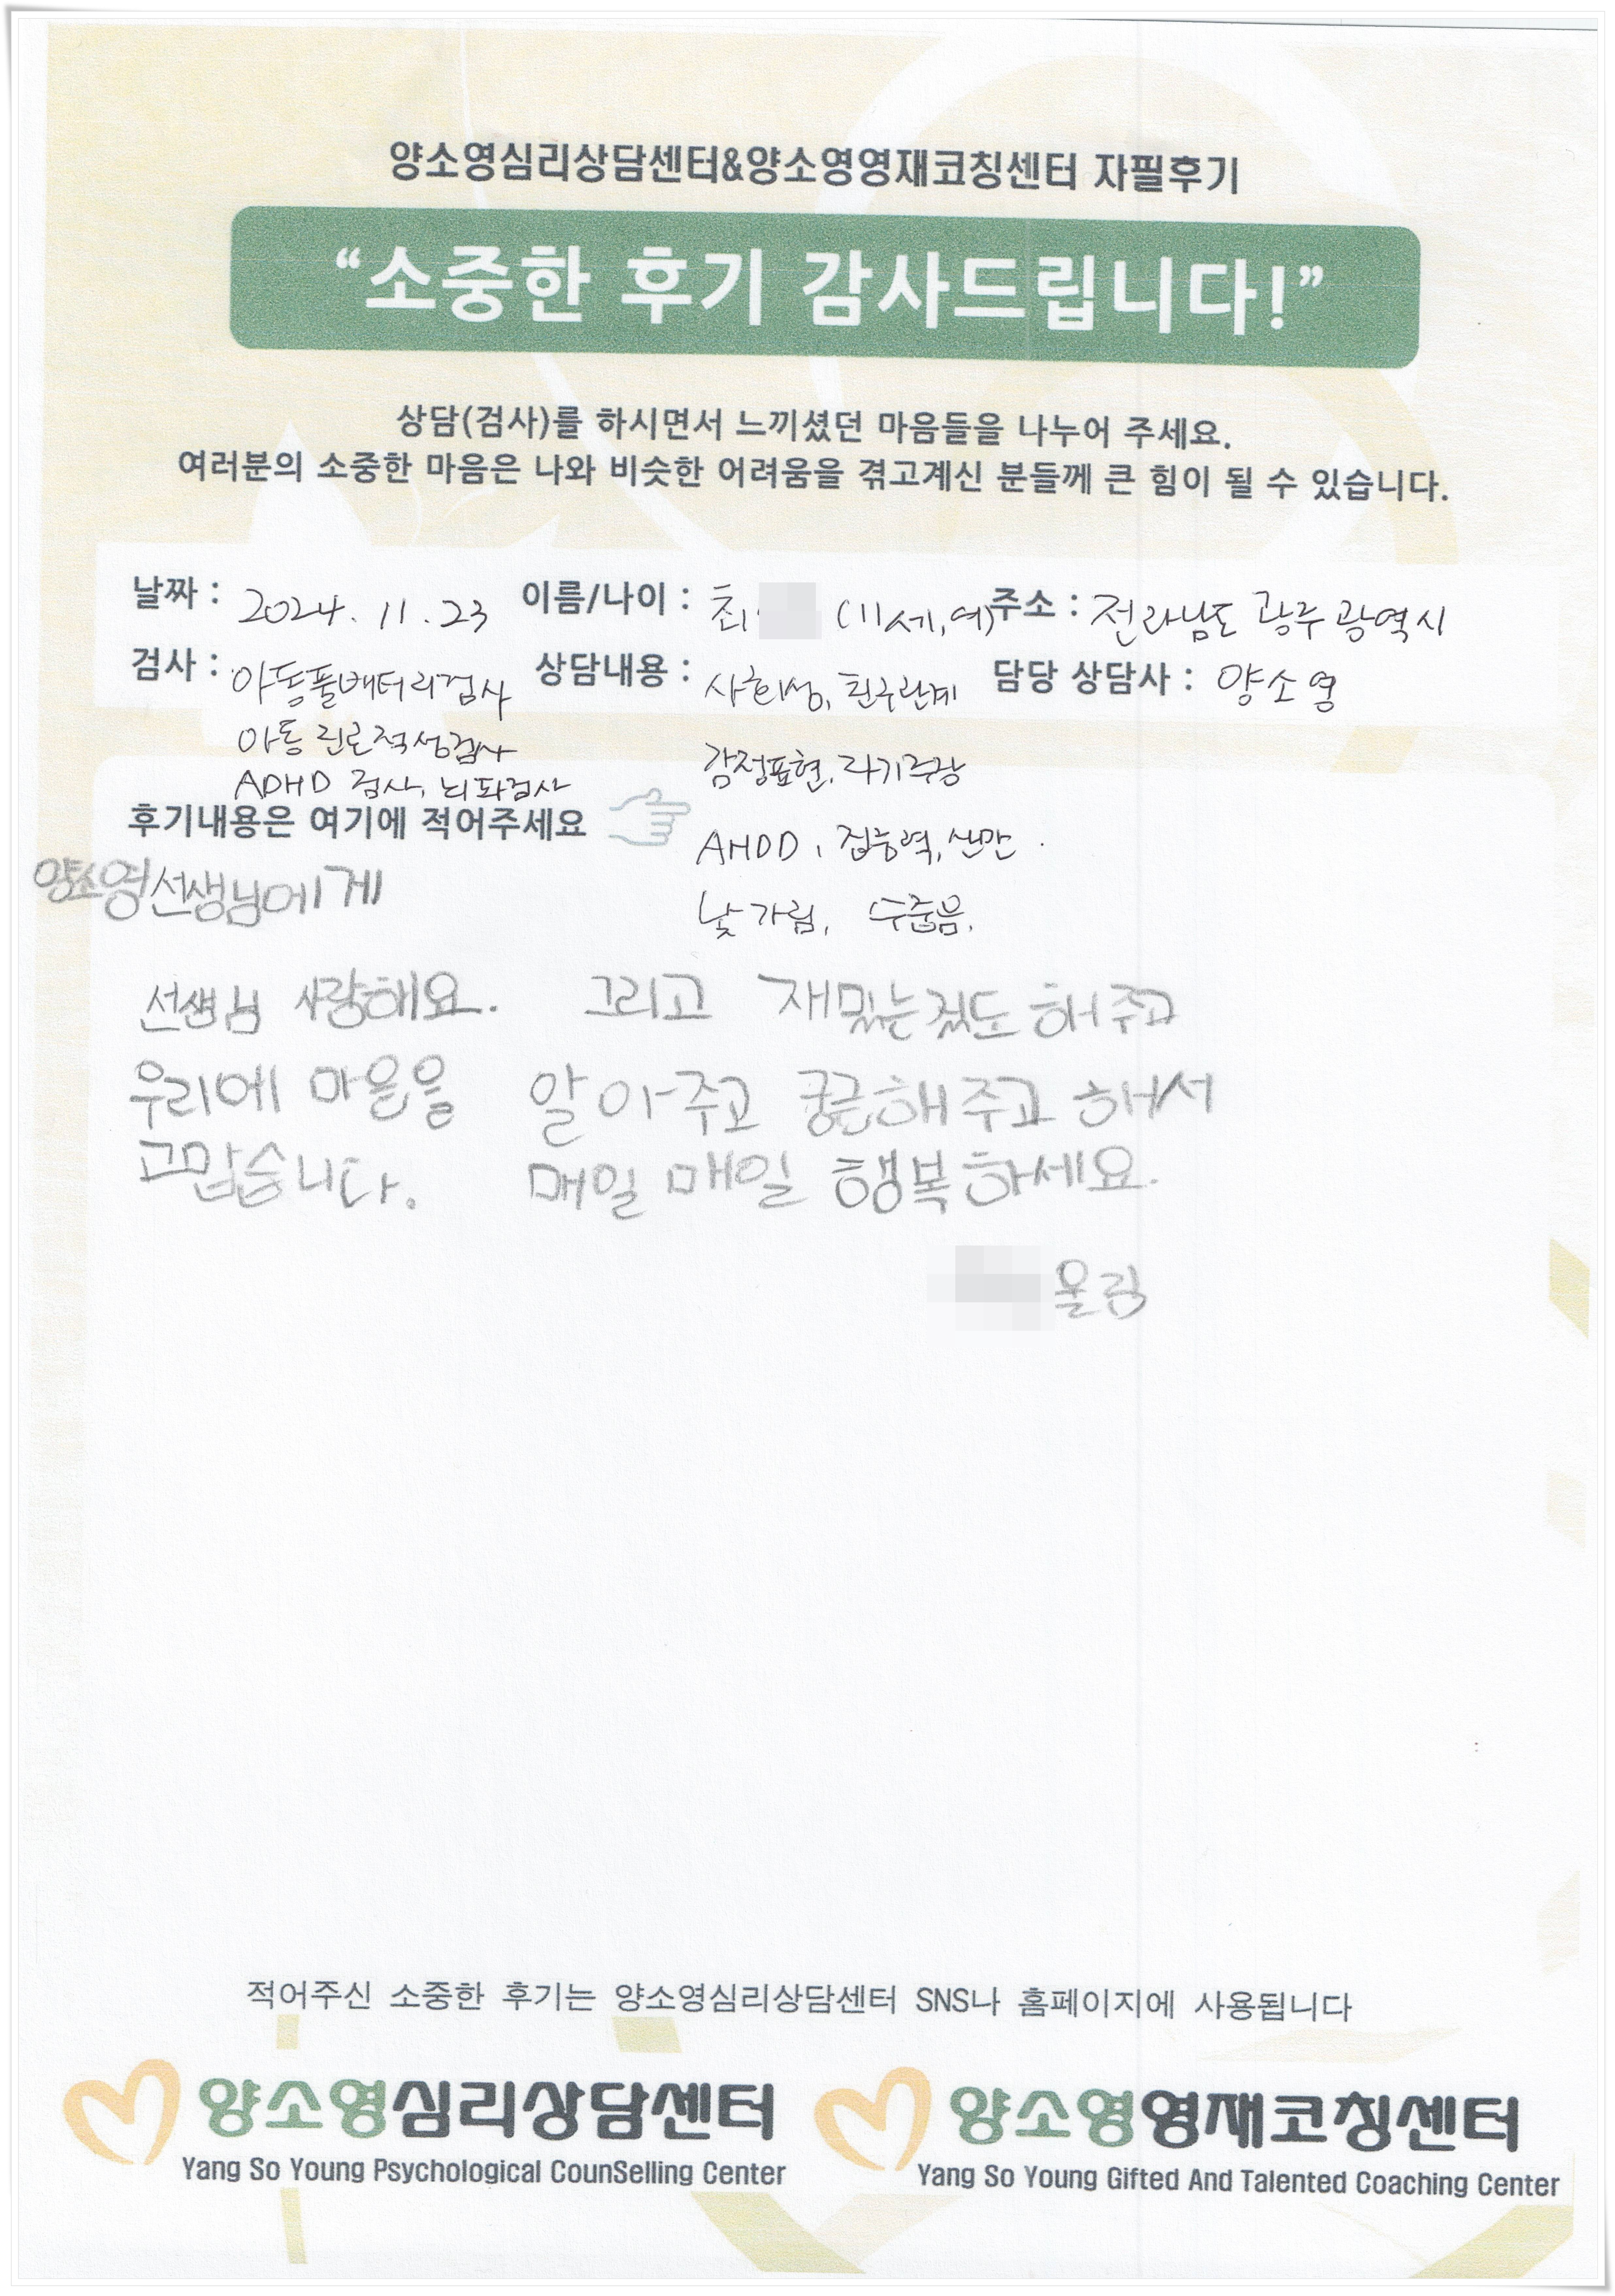 양소영심리상담센터&양소영영재코칭센터 자필후기
“소중한 후기 감사드립니다!”
상담(검사)를 하시면서 느끼셨던 마음들을 나누어 주세요.
여러분의 소중한 마음은 나와 비슷한 어려움을 겪고계신 분들께 큰 힘이 될 수 있습니다.
날짜 : 2024. 11. 23 이름/나이 : 최 (11세,여) 주소 : 전라남도 광주광역시
검사 : 아동풀배터리검사 상담내용 : 사회성, 친구관계 담당 상담사 : 양소영
아동 진로적성검사 감정표현, 자기주장
ADHD 검사, 뇌파검사
후기내용은 여기에 적어주세요 AHDD, 집중력, 산만.
양소영선생님에게 낯가림, 수줍음.
선생님 사랑해요. 그리고 재밌는 것도 해주고
우리에 마음을 알아주고 궁금해주고 해서
고맙습니다. 매일 매일 행복하세요.
올림
적어주신 소중한 후기는 양소영심리상담센터 SNS나 홈페이지에 사용됩니다
양소영심리상담센터 양소영영재코칭센터
Yang So Young Psychological CounSelling Center Yang So Young Gifted And Talented Coaching Center